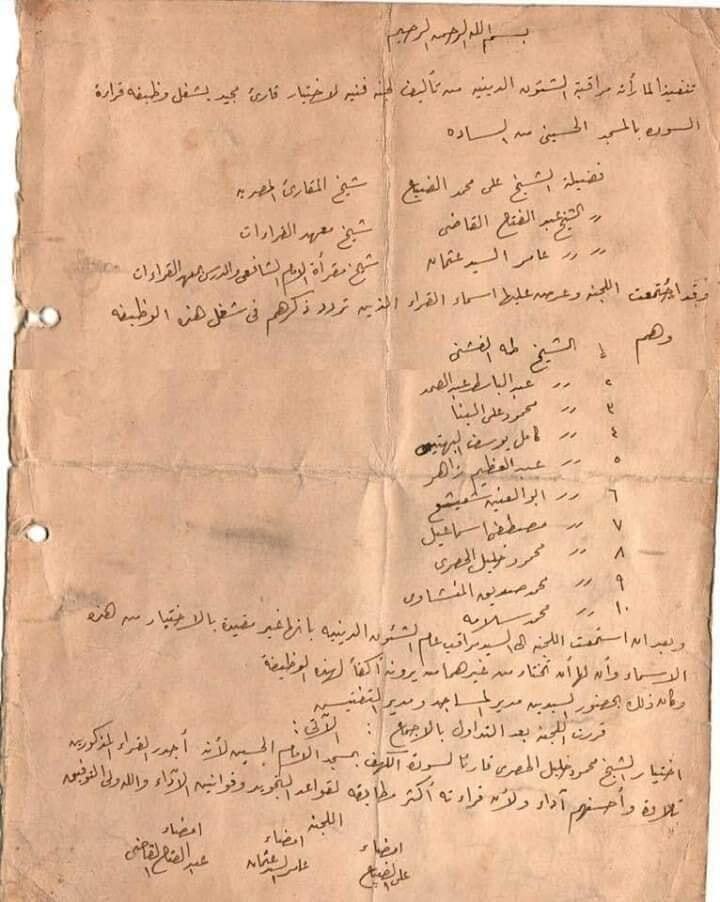 بسم الله الرحمن الرحيم
تنفيذا لما رأته مراقبة الشئون الدينيه من تأليف لجنه فنيه لاختيار قارئ مجيد يشغل وظيفه قراءة
السورة بالمسجد الحسينى من الساده
فضيلة الشيخ على محمد الضباع شيخ المقارئ المصريه
〃 الشيخ عبد الفتاح القاضى شيخ معهد القراءات
〃 〃 عامر السيد عثمان شيخ مقرأة الإمام الشافعى والمدرس بمعهد القراءات
وقد اجتمعت اللجنه وعرض عليها اسماء القراء الذين تردد ذكرهم فى شغل هذه الوظيفه
وهم ١ الشيخ طه الفشنى
٢ 〃 عبد الباسط عبد الصمد
٣ 〃 محمود على البنا
٤ 〃 كامل يوسف البهتيمى
٥ 〃 عبد العظيم زاهر
٦ 〃 ابو العنين شعيشع
٧ 〃 مصطفى اسماعيل
٨ 〃 محمود خليل الحصرى
٩ 〃 محمد صديق المنشاوى
١٠ 〃 محمد سلامه
وبعد ان استمعت اللجنة الى السيد مراقب عام الشئون الدينيه بانها غير مقيدة بالاختيار من هذه
الاسماء وأن لها أن تختار من غيرهم من يرونه أكفأ لهذه الوظيفة
وكان ذلك بحضور السيدين مدير المساجد ومدير التفتيش
قررت اللجنة بعد التداول بالاجماع : الآتى :
اختيار الشيخ محمود خليل الحصرى قارئا لسورة الكهف بمسجد الامام الحسين لأنه أجدر القراء المذكورين
تلاوة وأحسنهم آداء ولأن قراءته أكثر مطابقه لقواعد التجويد وقوانين الآداء والله ولى التوفيق
اللجنه
امضاء امضاء امضاء
على الضباع عامر السيد عثمان عبد الفتاح القاضى